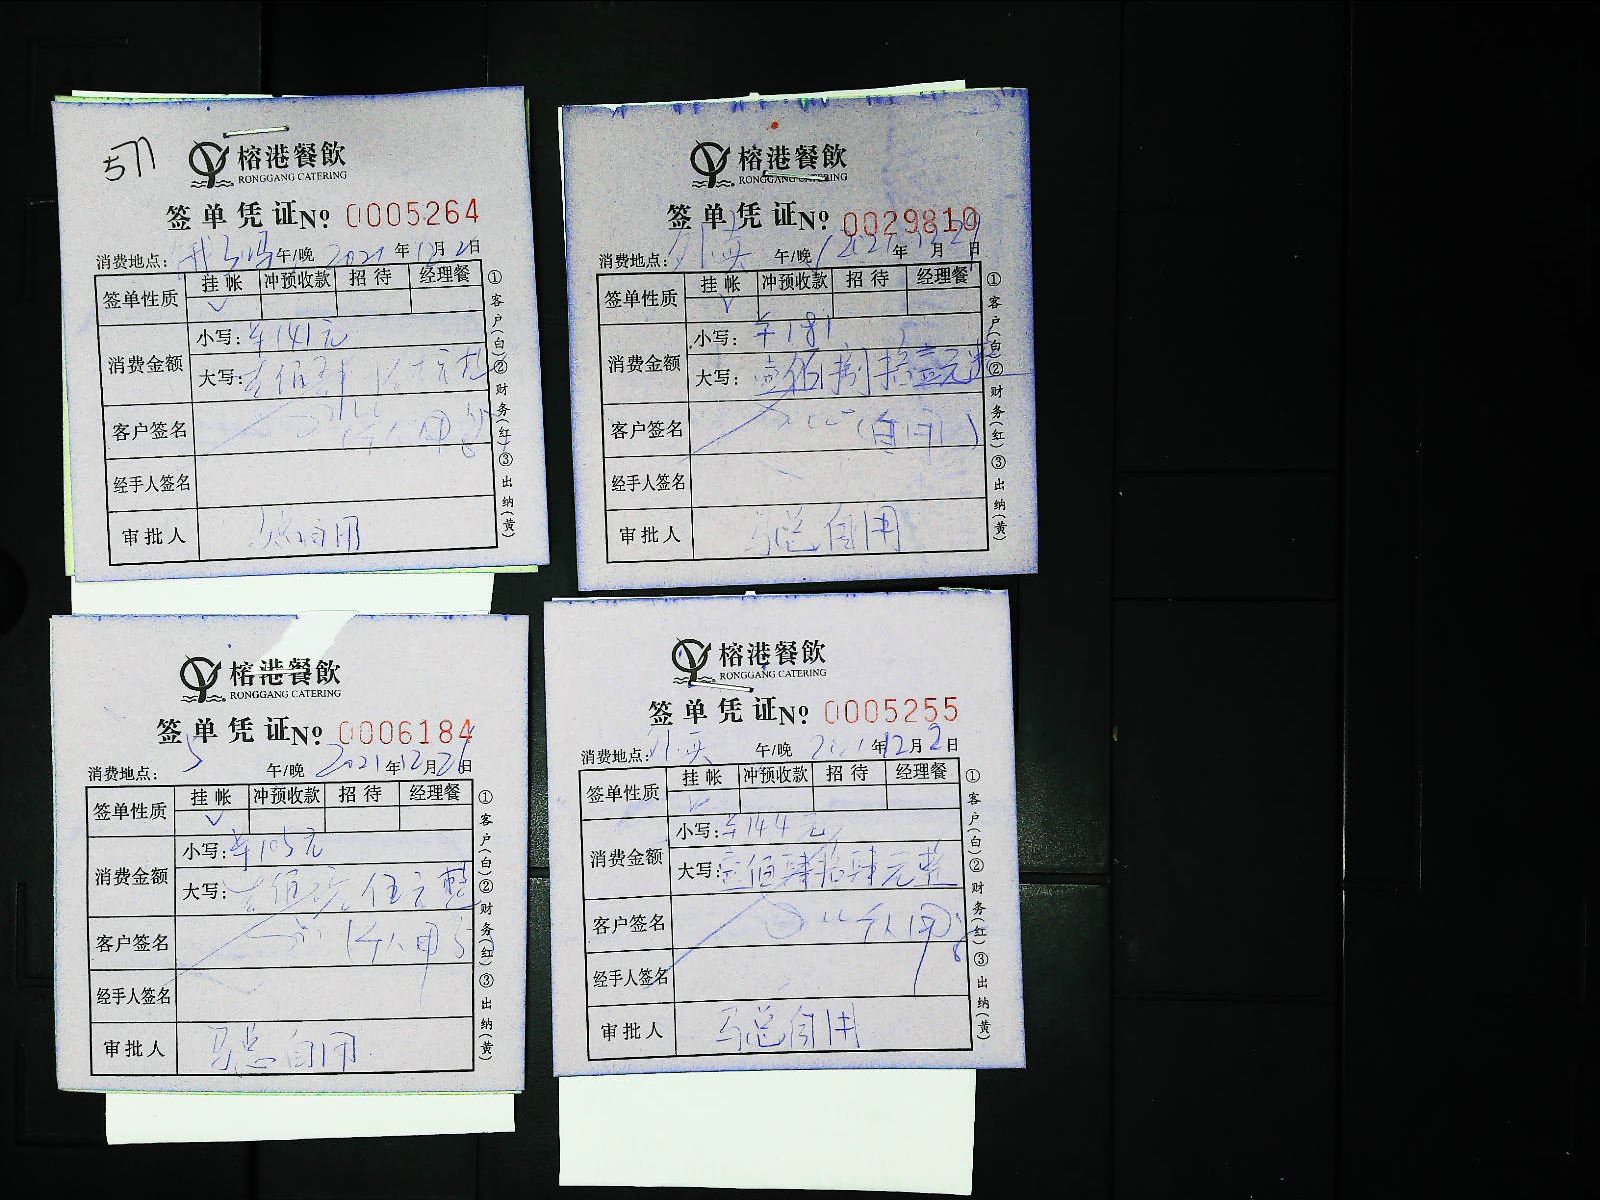 571
榕港餐飲
RONGGANG CATERING
签单凭证№ 0005264
消费地点: 午/晚 2021年12月2日
签单性质 挂帐 冲预收款 招待 经理餐
✓
消费金额 小写: 羊141元
大写:
客户签名 个人用
经手人签名
审批人 马总自用
①客户(白)②财务(红)③出纳(黄)
榕港餐飲
RONGGANG CATERING
签单凭证№ 0029810
消费地点: 外卖 午/晚 年 月 日
签单性质 挂帐 冲预收款 招待 经理餐
✓
消费金额 小写: 羊181
大写: 壹佰捌拾壹元整
客户签名 (自用)
经手人签名
审批人 马总自用
①客户(白)②财务(红)③出纳(黄)
榕港餐飲
RONGGANG CATERING
签单凭证№ 0006184
消费地点: 5 午/晚 2021年12月26日
签单性质 挂帐 冲预收款 招待 经理餐
✓
消费金额 小写: 羊105元
大写: 壹佰零伍元整
客户签名 个人用
经手人签名
审批人 马总自用
①客户(白)②财务(红)③出纳(黄)
榕港餐飲
RONGGANG CATERING
签单凭证№ 0005255
消费地点: 外卖 午/晚 2021年12月2日
签单性质 挂帐 冲预收款 招待 经理餐
✓
消费金额 小写: 羊144元
大写: 壹佰肆拾肆元整
客户签名 个人用
经手人签名
审批人 马总自用
①客户(白)②财务(红)③出纳(黄)